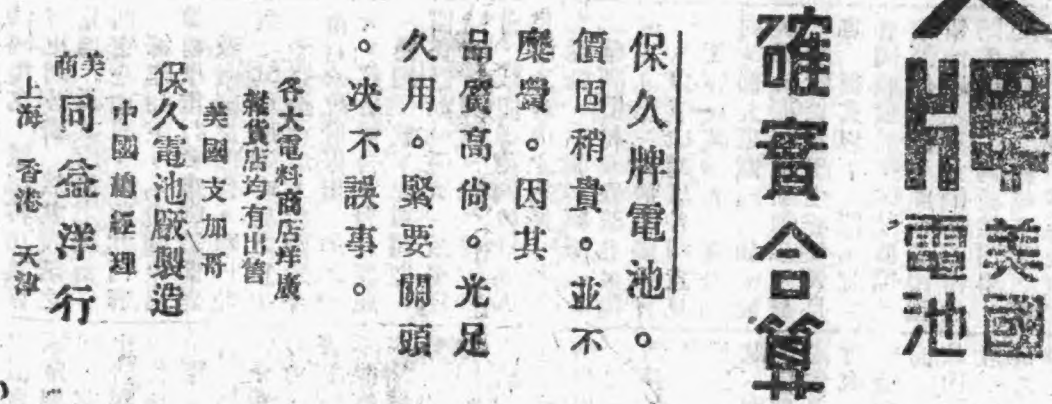 牌
美國
電池
確實合算
保久牌電池。
價固稍貴。並不
糜費。因其
品質高尚。光足
久用。緊要關頭
。决不誤事。
各大電料商店洋廣
雜貨店均有出售
美國支加哥
保久電池廠製造
中國總經理
美商同益洋行
上海 香港 天津